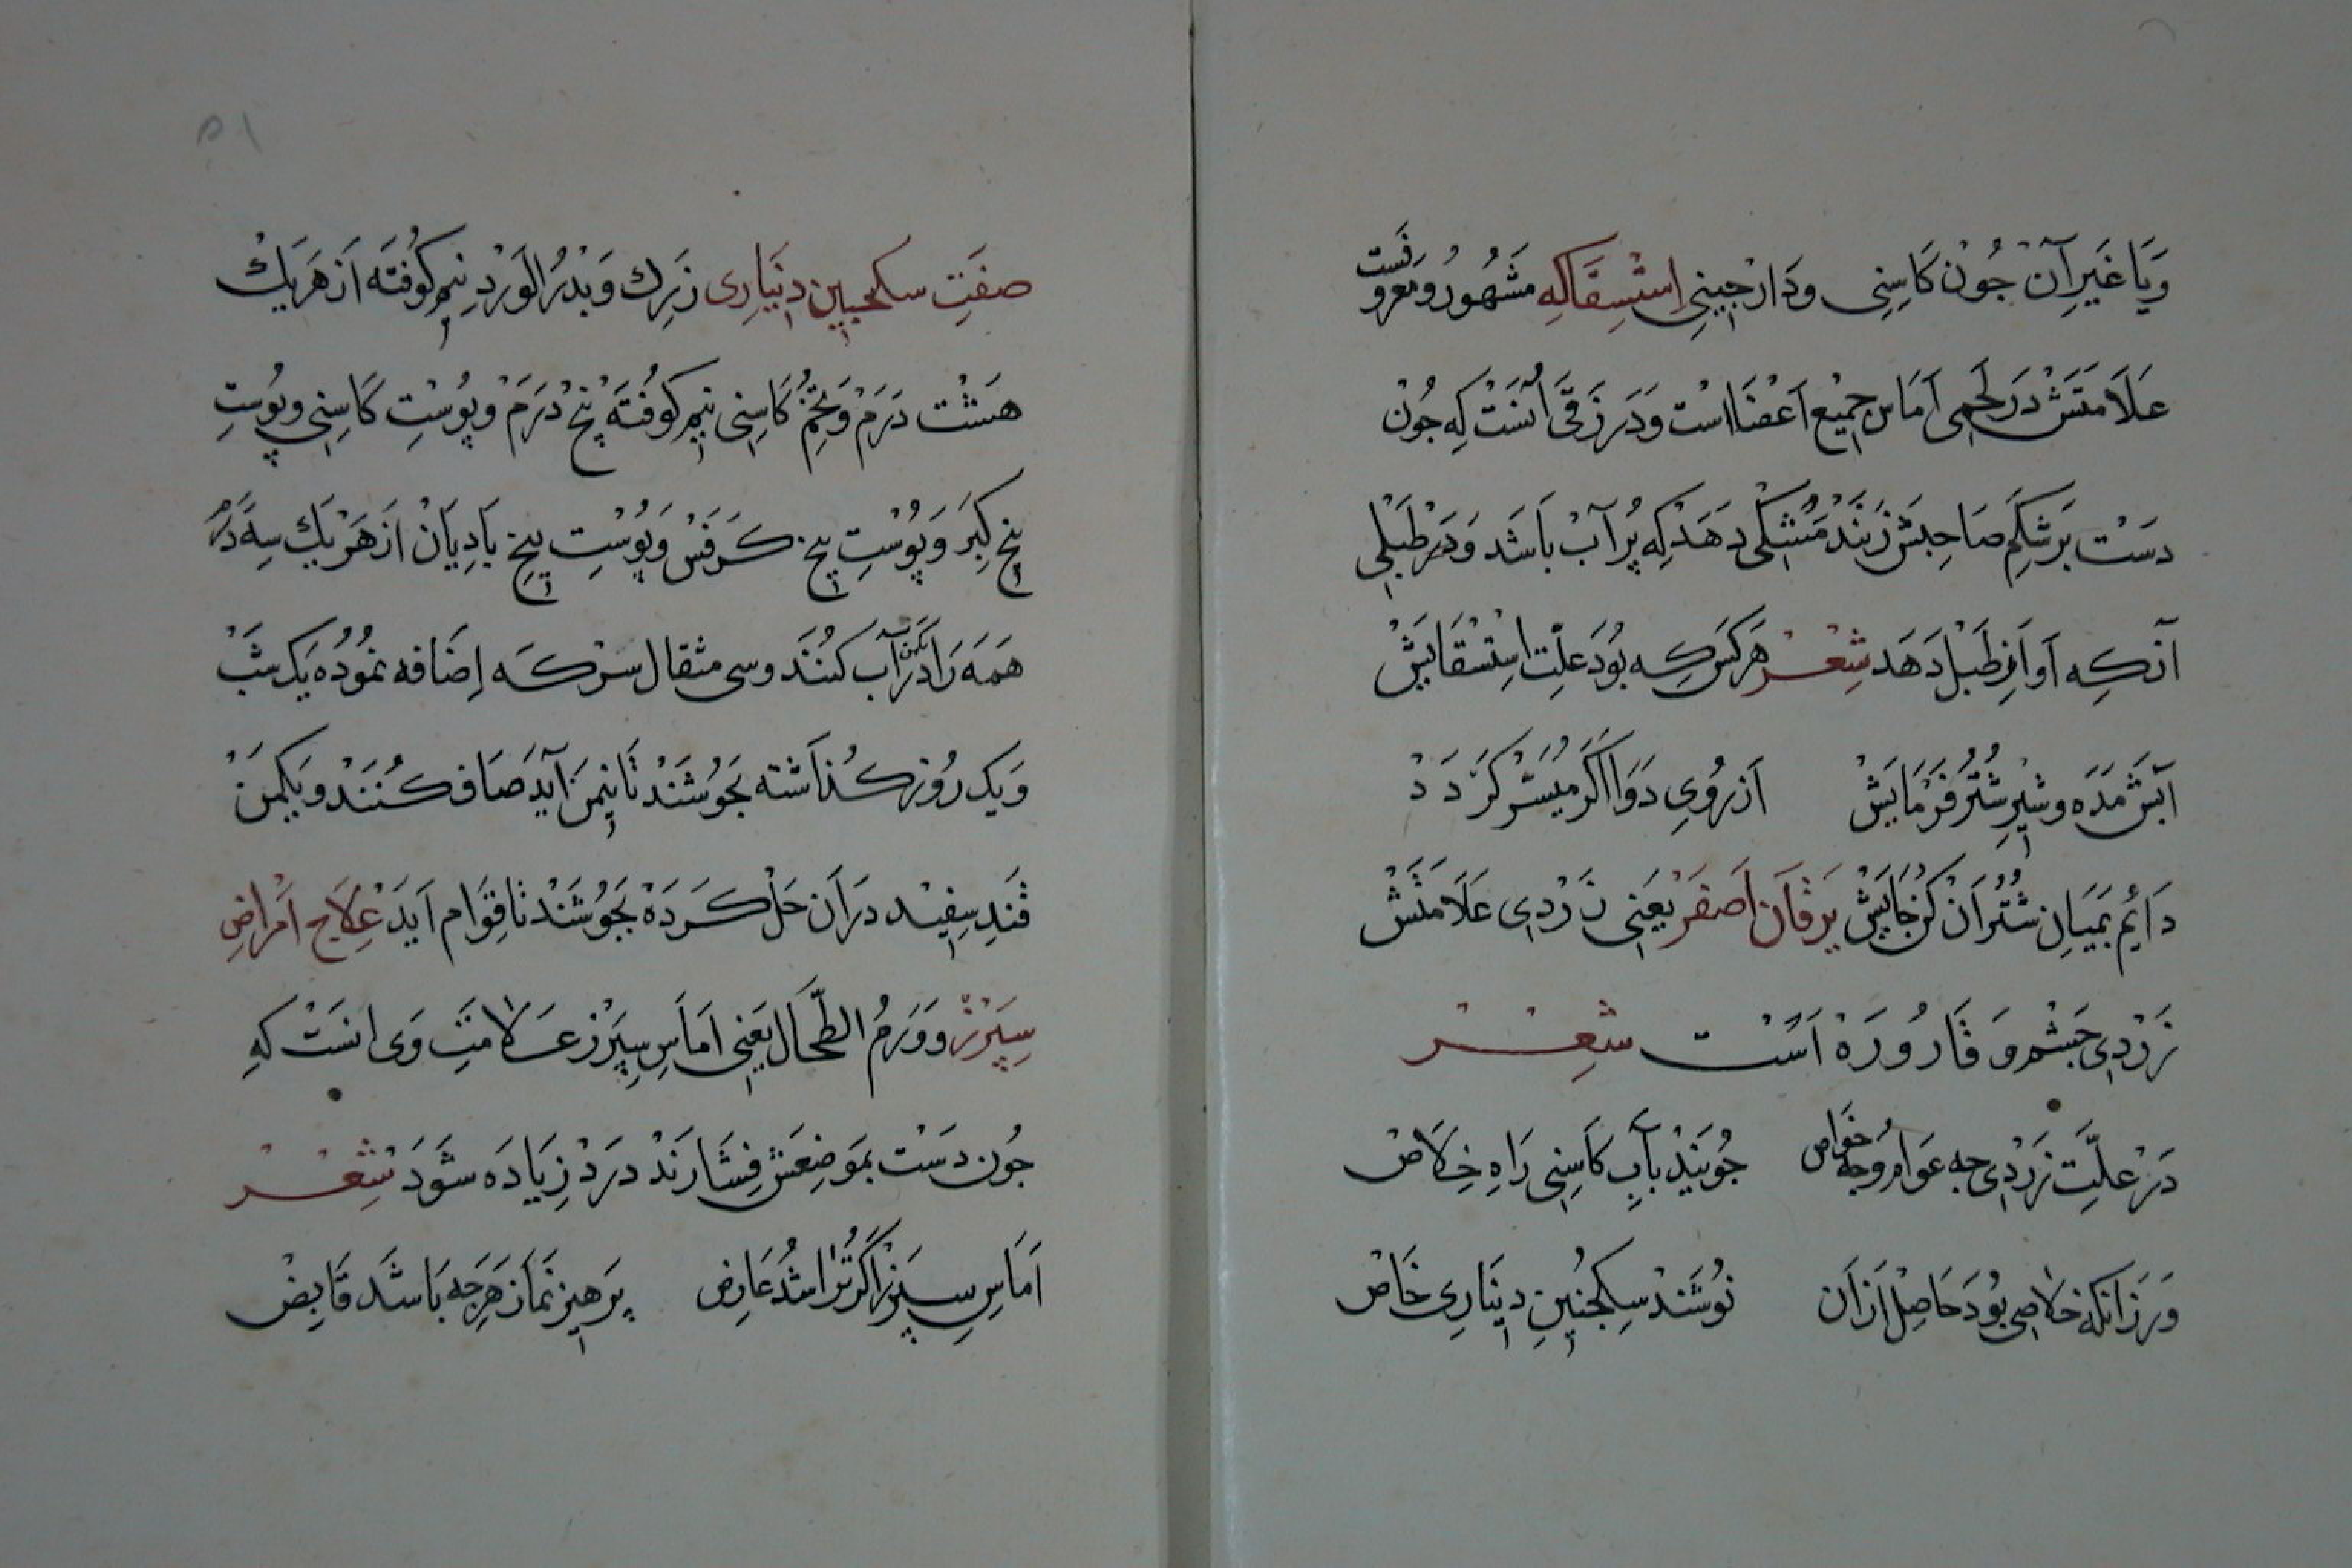 وَیَا غَیرِ آنْ جُوْن کَاسِنِی وَدَارْ جِینِی اِسْتِسقَا کِه مَشهُورُ و مَعروفَست
عَلَامَتَشْ دَر لَحمِی اَمَاسِ جَمِیْع اَعْضَا اسْت وَدَر زَقِّی اُنَسْتْ کِه جُوْن
دَسْت بَر شِکَمِ صَاحِبَشْ زَنَنْدْ مَشْکِی دَهَدْ کِه پُر آبْ بَاشَد وَدَرْ طَبْلِی
آنکِه آوَازِ طَبْل دَهَد شِعْر هَر کَس کِه بُوَد عِلَّتِ اِسْتِسْقَایَشْ
آبَش مَدَه و شِیرِ شُتُر فَرْمَایَشْ اَز رُویِ دَوَا اَکَر مُیَسَّر کَرْدَدْ
دَایِم بَمَیَانِ شُتُرَان کُن جَایَشْ یَرَقَانِ اَصْفَرْ یَعنِی زَرْدِی عَلَامَتَشْ
زَرْدِی جَشْم و قَارُورَهْ اَسْت شِعْر
دَرْ عِلَّتِ زَرْدِی جه عَوَام و جه خَوَاص جُوینَدْ بآبِ کَاسِنِی رَاهِ خَلَاصْ
وَرزَانکه خَلَاصِی بُوَد حَاصِل اَز آن نُوشَنْد سِکَنجُبِینِ دِینَارِی خَاصْ
۵۱
صِفَتِ سکنجبین دینَارِی زَرِک وَبَذْرُ الوَرْدِ نِیم کُوفْتَه اَز هَر یَکْ
هَشْت دَرَمْ وَتُخْمِ کَاسِنِی نِیم کُوفْتَه پَنْج دَرَمْ وَپُوسْتِ کَاسِنِی وپُوسْتِ
بِیخ کِبَر وَپُوْسْتِ بیخِ کَرَفْس وَپُوْسْتِ بِیخِ بَادِیَانْ اَز هَرْ یَک سِه دَرَم
هَمَه رَا دَر یکمن آب کُنَنْد وسی مثقال سرْکَه اِضَافه نموُدُه یَک شَبْ
وَیَک رُوْز کُذَاشته بَجوُشَنَدْ تَا نِیمَن آیَد صَاف کُنَنَدْ و یَکمَنْ
قَندِ سِفِیْد دَر اَن حَلْ کَردَهْ بَجوُشَنَدْ تا قِوَام آیَدْ عِلَاجِ اَمْرَاضِ
سِپَرْز و وَرَمُ الطِّحَال یَعْنِی اَمَاسِ سِپَرْز عَلَامَتِ وَی انَسْتْ کِهِ
جُون دَسْت بَمَوضِعَش فِشَارَنْد دَرَدْ زِیَادَه شَوَد شِعْر
اَمَاسِ سِپَرْز اَکَر تُرَا شُدْ عَارِض پَرهیز نَمَا زَ هَرجه بَاشَد قَابِضْ